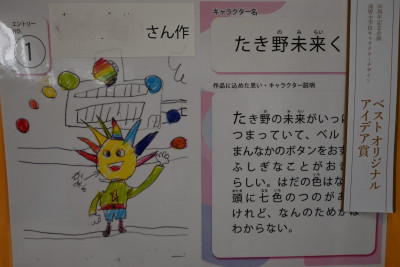 エントリー
no.
1
さん作
キャラクター名
たき野未来く
の み らい
作品に込めた思い・キャラクター説明
たき野の未来がいっ
つまっていて、ベル
まんなかのボタンをおす
ふしぎなことがおき
らしい。はだの色はな
頭に七色のつのがあ
けれど、なんのためか
わからない。
ベストオリジナル
アイデア賞